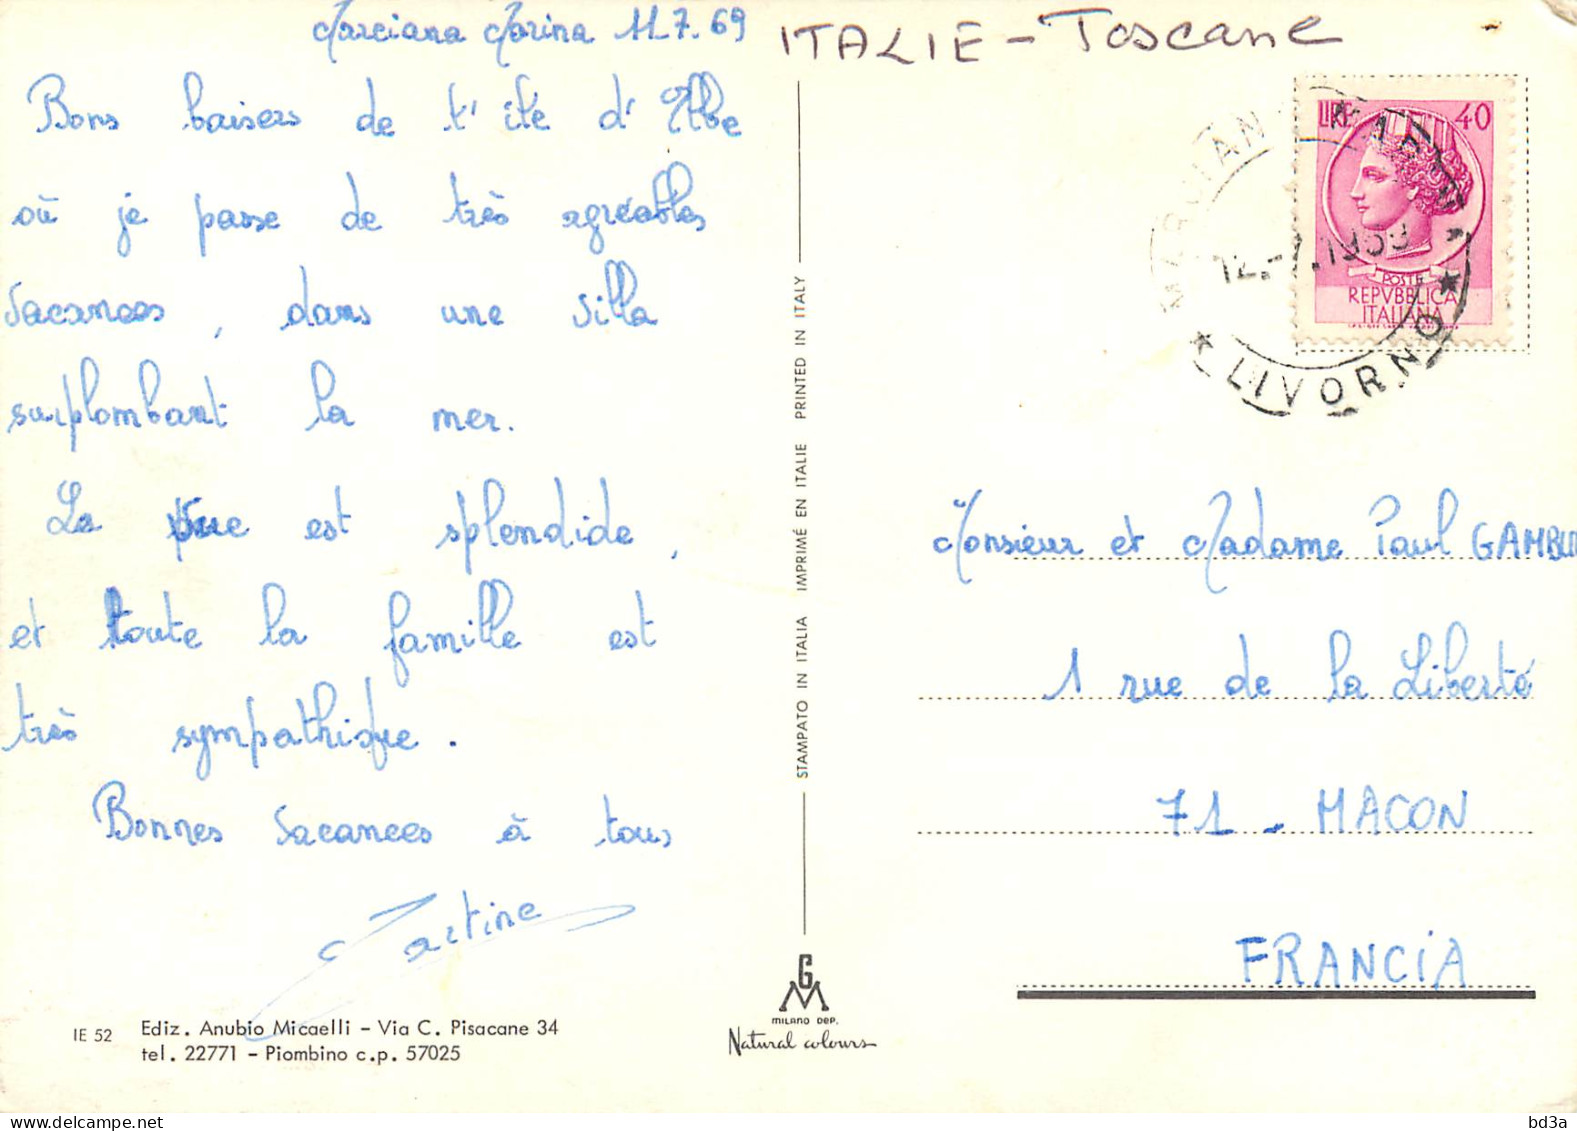 Marciana Marina 11.7.69
ITALIE - Toscane
Bons baisers de l'île d'Elbe
où je passe de très agréables
vacances, dans une villa
surplombant la mer.
La vue est splendide,
et toute la famille est
très sympathique.
Bonnes vacances à tous
Martine
IE 52
Ediz. Anubio Micaelli - Via C. Pisacane 34
tel. 22771 - Piombino c.p. 57025
STAMPATO IN ITALIA IMPRIMÉ EN ITALIE PRINTED IN ITALY
GM
MILANO DEP.
Natural colours
LIRE 40
POSTE
REPVBBLICA
ITALIANA
MARCIANA MARINA
12.-7.1969
* LIVORNO *
Monsieur et Madame Paul GAMBU
1 rue de la Liberté
71 - MACON
FRANCIA
delcampe.net
bd3a